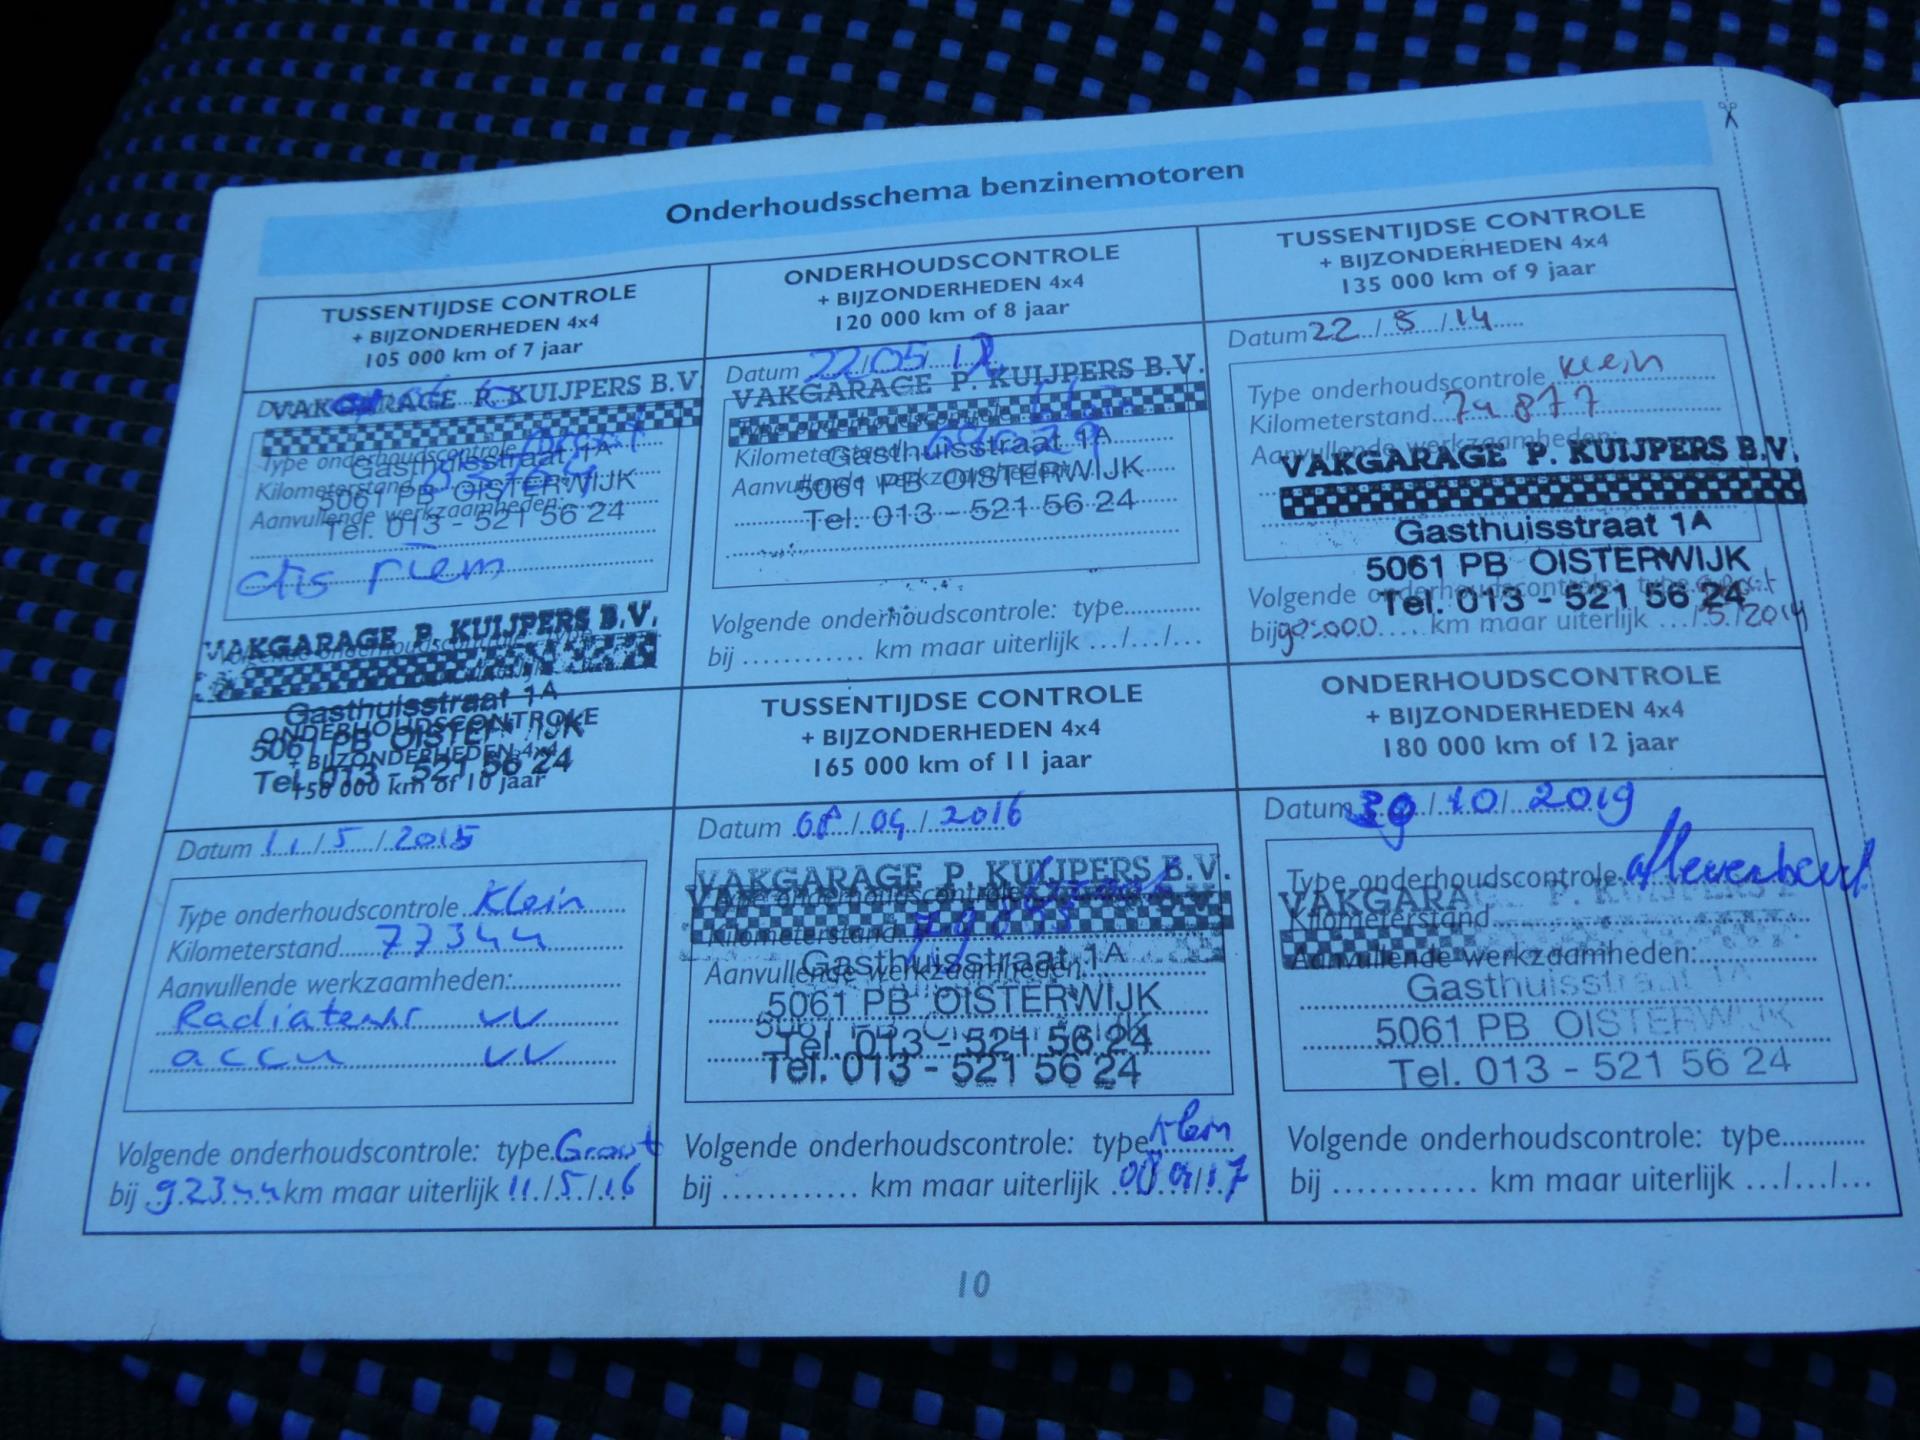 Onderhoudsschema benzinemotoren
TUSSENTIJDSE CONTROLE
+ BIJZONDERHEDEN 4x4
105 000 km of 7 jaar
VAKGARAGE P. KUIJPERS B.V.
Type onderhoudscontrole
Gasthuisstraat 1A
Kilometerstand
5061 PB OISTERWIJK
Aanvullende werkzaamheden:
Tel. 013 - 521 56 24
dis riem
VAKGARAGE P. KUIJPERS B.V.
Gasthuisstraat 1A
ONDERHOUDSCONTROLE
+ BIJZONDERHEDEN 4x4
5061 PB OISTERWIJK
Tel. 013 - 521 56 24
150 000 km of 10 jaar
ONDERHOUDSCONTROLE
+ BIJZONDERHEDEN 4x4
120 000 km of 8 jaar
Datum 22/05
VAKGARAGE P. KUIJPERS B.V.
Type onderhoudscontrole
Kilometerstand
Gasthuisstraat 1A
Aanvullende werkzaamheden:
5061 PB OISTERWIJK
Tel. 013 - 521 56 24
Volgende onderhoudscontrole: type............
bij ............ km maar uiterlijk .../.../...
TUSSENTIJDSE CONTROLE
+ BIJZONDERHEDEN 4x4
135 000 km of 9 jaar
Datum 22/5/14
Type onderhoudscontrole Klein
Kilometerstand 74877
Aanvullende werkzaamheden:
VAKGARAGE P. KUIJPERS B.V.
Gasthuisstraat 1A
5061 PB OISTERWIJK
Volgende onderhoudscontrole: type
Tel. 013 - 521 56 24
bij 90.000 km maar uiterlijk .../5/2014
Datum 11/5/2015
Type onderhoudscontrole Klein
Kilometerstand 77344
Aanvullende werkzaamheden:
Radiateur vv
accu vv
Volgende onderhoudscontrole: type Groot
bij 92344 km maar uiterlijk 11/5/16
TUSSENTIJDSE CONTROLE
+ BIJZONDERHEDEN 4x4
165 000 km of 11 jaar
Datum 08/04/2016
VAKGARAGE P. KUIJPERS B.V.
Type onderhoudscontrole
Kilometerstand
Gasthuisstraat 1A
Aanvullende werkzaamheden:
5061 PB OISTERWIJK
Tel. 013 - 521 56 24
Tel. 013 - 521 56 24
Volgende onderhoudscontrole: type Klein
bij ............ km maar uiterlijk 08/04/17
ONDERHOUDSCONTROLE
+ BIJZONDERHEDEN 4x4
180 000 km of 12 jaar
Datum 30/10/2019
Type onderhoudscontrole afleverbeurt
VAKGARAGE P. KUIJPERS
Kilometerstand
Aanvullende werkzaamheden:
Gasthuisstraat 1A
5061 PB OISTERWIJK
Tel. 013 - 521 56 24
Volgende onderhoudscontrole: type............
bij ............ km maar uiterlijk .../.../...
10